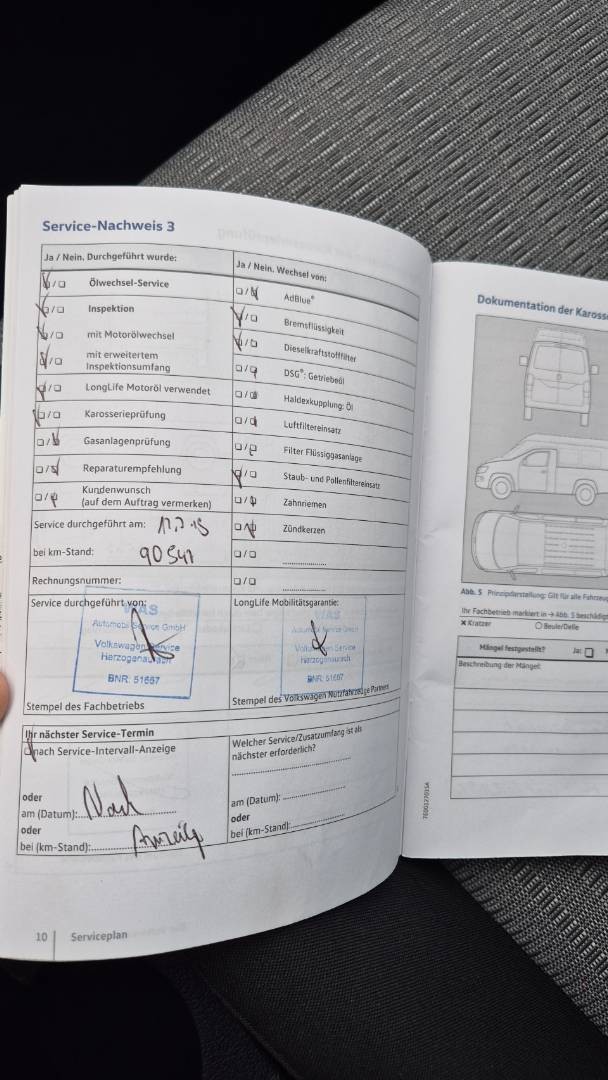 Service-Nachweis 3
Ja / Nein. Durchgeführt wurde:
Ölwechsel-Service
Inspektion
mit Motorölwechsel
mit erweitertem
Inspektionsumfang
LongLife Motoröl verwendet
Karosserieprüfung
Gasanlagenprüfung
Reparaturempfehlung
Kundenwunsch
(auf dem Auftrag vermerken)
Service durchgeführt am:
bei km-Stand: 90541
Rechnungsnummer:
Service durchgeführt von:
Automobil Service GmbH
Volkswagen Service
Herzogenaurach
BNR: 51667
Stempel des Fachbetriebs
Ja / Nein. Wechsel von:
AdBlue®
Bremsflüssigkeit
Dieselkraftstofffilter
DSG®: Getriebeöl
Haldexkupplung: Öl
Luftfiltereinsatz
Filter Flüssiggasanlage
Staub- und Pollenfiltereinsatz
Zahnriemen
Zündkerzen
LongLife Mobilitätsgarantie:
Automobil Service GmbH
Volkswagen Service
Herzogenaurach
BNR: 51667
Stempel des Volkswagen Nutzfahrzeuge Partners
Ihr nächster Service-Termin
nach Service-Intervall-Anzeige
oder
am (Datum): Nach
oder
bei (km-Stand): Anzeige
Welcher Service/Zusatzumfang ist als
nächster erforderlich?
am (Datum):
oder
bei (km-Stand):
10 Serviceplan
Dokumentation der
Abb. 5 Prinzipdarstellung: Gilt für alle
Ihr Fachbetrieb markiert in → Abb. 5
x Kratzer O Beule/Delle
Mängel festgestellt? Ja:
Beschreibung der Mängel: